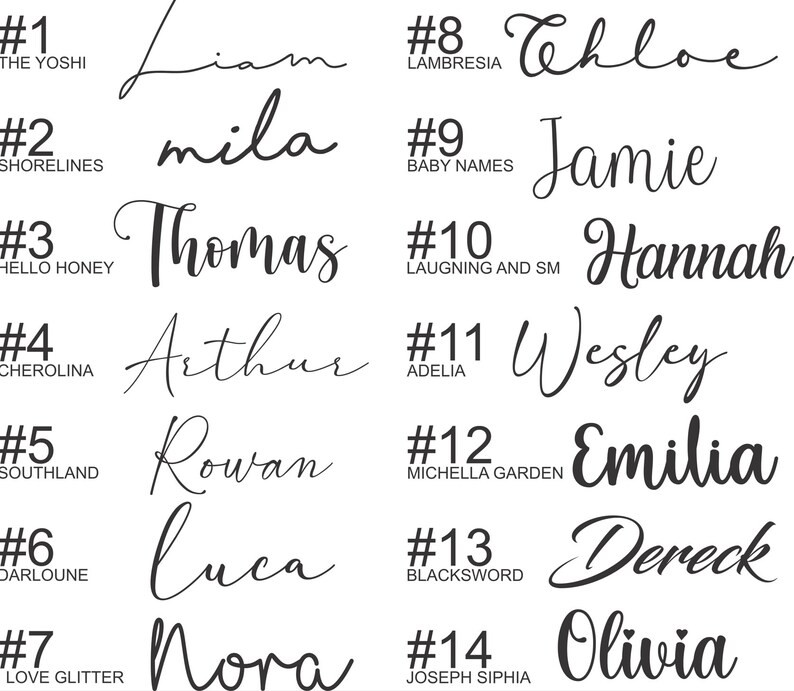 #1
THE YOSHI
Liam
#2
SHORELINES
mila
#3
HELLO HONEY
Thomas
#4
CHEROLINA
Arthur
#5
SOUTHLAND
Rowan
#6
DARLOUNE
Luca
#7
LOVE GLITTER
Nora
#8
LAMBRESIA
Chloe
#9
BABY NAMES
Jamie
#10
LAUGNING AND SM
Hannah
#11
ADELIA
Wesley
#12
MICHELLA GARDEN
Emilia
#13
BLACKSWORD
Dereck
#14
JOSEPH SIPHIA
Olivia